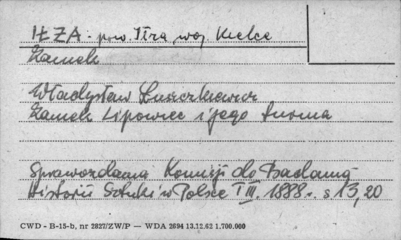 IŁŻA - pow. Iłża, woj. Kielce
Zamek
Władysław Łuszczkiewicz
Zamek Lipowiec i jego
Sprawozdania Komisji do Badania
Historii Sztuki w Polsce T III. 1888. s 13, 20
CWD - B-15-b, nr 2827/ZW/P — WDA 2694 13.12.62 1.700.000